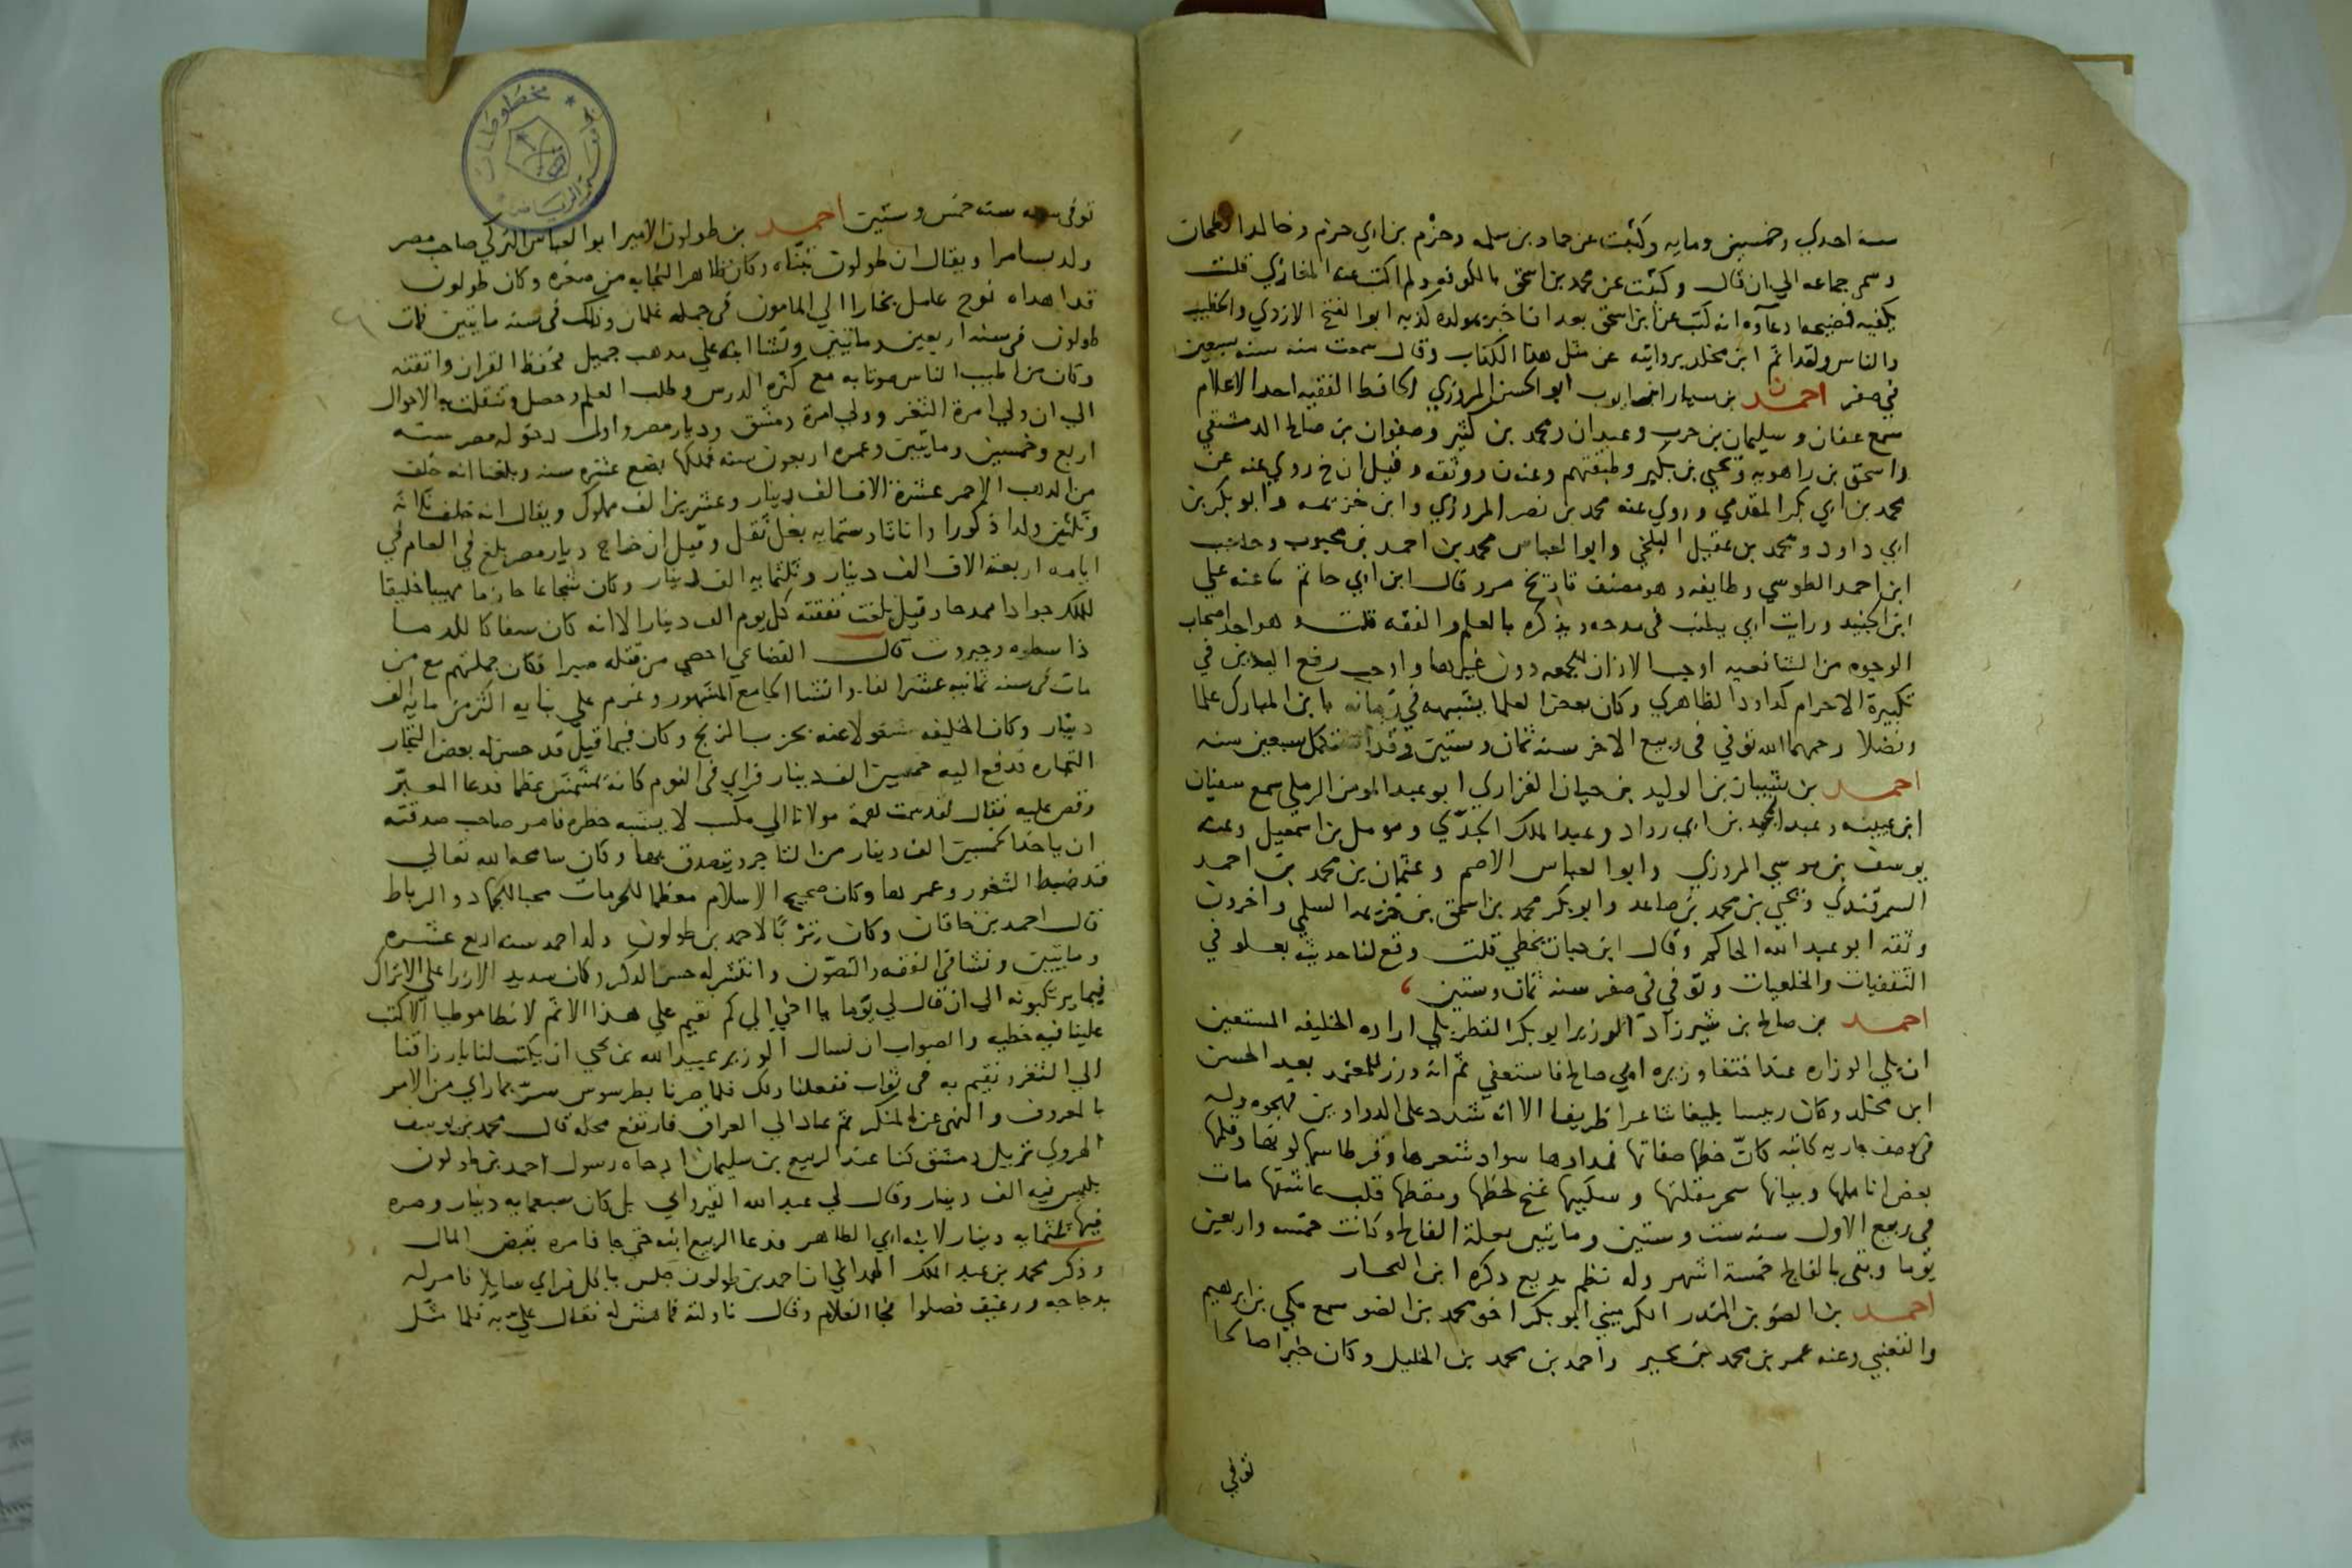 سنة احدي وخمسين ومايه وكتبت عن حماد بن سلمه وحزم بن ابي حزم وخالد الطحان
وسمي جماعه الي ان قال وكتبت عن محمد بن اسحق بالكوفه ولم اكتب عنه المغازي قلت
يكفيه فضيحه ادعآوه انه كتب عن ابن اسحق بعد ان اخبر بمولده كذبه ابوا لفتح الازدي والخطيب
والناس ولقد اثم ابن مخلد بروايته عن مثل هذا الكتاب وقال سمعت منه سنه سبعين
في صفر احمد بن سيار بن ايوب ابو الحسن المروزي الحافظ الفقيه احد الاعلام
سمع عفان وسليمان بن حرب وعبدان ومحمد بن كثير وصفوان بن صالح الدمشقي
واسحق بن راهويه ويحيي بن بكير وطبقتهم وعنه ن ووثقه وقيل ان خ روي عنه عن
محمد بن ابي بكر المقدمي وروي عنه محمد بن نصر المروزي وابن خزيمه وابو بكر بن
ابي داود ومحمد بن عقيل البلخي وابوا لعباس محمد بن احمد بن محبوب وحاجب
ابن احمد الطوسي وطايفه وهو مصنف تاريخ مرو قال ابن ابي حاتم ثنا عنه علي
ابن الجنيد ورايت ابي يطنب في مدحه ويذكره بالعلم والفقه قلت وهو احد اصحاب
الوجوه من الشافعيه اوجب الاذان للجمعه دون غيرها واوجب رفع اليدين في
تكبيرة الاحرام كداود الظاهري وكان بعض العلما يشبهه في زمانه بابن المبارك علما
وفضلا رحمهما الله توفي في ربيع الاخر سنه ثمان وستين وقد استكمل سبعين سنه
احمد بن شيبان بن الوليد بن حيان الفزاري ابو عبد المومن الرملي سمع سفيان
ابن عيينه وعبد المجيد بن ابي رواد وعبد الملك الجدّي ومومل بن اسمعيل وعنه
يوسف بن موسي المروزي وابوا لعباس الاصم وعثمان بن محمد بن احمد
السمرقندي ويحيي بن محمد بن صاعد وابو بكر محمد بن اسحق بن خزيمه السلمي واخرون
وثقه ابو عبد الله الحاكم وقال ابن حبان يخطي قلت وقع لنا حديثه بعلو في
الثقفيات والخلعيات وتوفي في صفر سنه ثمان وستين
احمد بن صالح بن شيرزاد الوزير ابو بكر القطربلي اراده الخليفه المستعين
ان يلي الوزاره عند اختفا وزيره ابي صالح فاستعفي ثم انه وزر للمعتمد بعد الحسن
ابن مخلد وكان رييسا بليغا شاعرا ظريفا الا انه شدد علي الدواوين فهجوه وله
في وصف جاريه كاتبه كانّ خطها صفاتها فمدادها سواد شعرها وقرطاسها لونها وقلمها
بعض اناملها وبيانها سحر مقلتها وسكينها غنج لحظها ومقطها قلب عاشقها مات
في ربيع الاول سنه ست وستين ومايتين بعلة الفالج وكانت خمسه واربعين
يوما وبقي بالفالج خمسة اشهر وله نظم بديع ذكره ابن النجار
احمد بن الضو بن المنذر الكرميني ابو بكر اخو محمد بن الضو سمع مكي بن ابرهيم
والقعنبي وعنه عمر بن محمد بن بجير واحمد بن محمد بن الخليل وكان خيرا صالحا
توفي
توفي سنه خمس وستين احمد بن طولون الامير ابوا لعباس التركي صاحب مصر
ولد بسامرا ويقال ان طولون تبنّاه وكان ظاهر النجابه من صغره وكان طولون
قد اهداه نوح عامل بخارا الي المامون في جملة غلمان وذلك في سنه مايتين فمات
طولون في سنه اربعين ومايتين ونشا ابنه علي مذهب جميل فحفظ القران واتقنه
وكان من اطيب الناس صوتا به مع كثره الدرس وطلب العلم وحصل وتنقلت به الاحوال
الي ان ولي امرة الثغر وولي امرة دمشق وديار مصر واول دخوله مصر سنه
اربع وخمسين ومايتين وعمره اربعون سنه فملكها بضع عشره سنه وبلغنا انه خلف
من الذهب الاحمر عشرة الاف الف دينار وعشرين الف مملوك ويقال انه خلف ثلاثة
وثلثين ولدا ذكورا واناثا وستمايه بغل ثقل وقيل ان خراج ديار مصر بلغ في العام في
ايامه اربعة الاف الف دينار وثلثمايه الف دينار وكان شجاعا حازما مهيبا خليقا
للملك جوادا ممدحا وقيل بلغت نفقته كل يوم الف دينار الا انه كان سفاكا للدما
ذا سطوه وجبروت قال القضاعي احصي من قتله صبرا فكان جملتهم مع من
مات في سجنه ثمانيه عشر الفا وانشا الجامع المشهور وغرم علي بنايه اكثر من مايه الف
دينار وكان الخليفه مشغولا عنه بحرب الزنج وكان فيما قيل قد حسن له بعض التجار
التجاره فدفع اليه خمسين الف دينار فراي في النوم كانه يمشمش عظما فدعا المعبّر
وقص عليه فقال لقد سمت همة مولانا الي مكسب لا يشبه خطره فامر صاحب صدقته
ان ياخذ الخمسين الف دينار من التاجر ويتصدق بها وكان سامحه الله تعالي
قد ضبط الثغور وعمرها وكان صحيح الاسلام معظما للحرمات محبا للجهاد والرباط
قال احمد بن خاقان وكان تربًا لاحمد بن طولون ولد احمد سنه اربع عشره
ومايتين ونشا في الفقه والتصوّن وانتشر له حسن الذكر وكان شديد الازرا علي الاتراك
فيما يرتكبونه الي ان قال لي يوما يا اخي الي كم نقيم علي هذا الاثم لا نطا موطيا الا كتب
علينا فيه خطيه والصواب ان نسال الوزير عبيد الله بن يحي ان يكتب لنا بارزاقنا
الي الثغر ونقيم به في ثواب ففعلنا ذلك فلما صرنا بطرسوس سرّ بما راي من الامر
بالمعروف والنهي عن المنكر ثم عاد الي العراق فارتفع محله قال محمد بن يوسف
الهروي نزيل دمشق كنا عند الربيع بن سليمان اذ جاه رسول احمد بن طولون
بكيس فيه الف دينار وقال لي عبد الله القيرواني بل كان سبعمايه دينار وصره
فيها ثلثمايه دينار لابنه ابي الطاهر فدعا الربيع ابنه حتي جا فامره بقبض المال
وذكر محمد بن عبد الملك الهمداني ان احمد بن طولون جلس ياكل فراي سايلا فامر له
بدجاجه ورغيف فجا الغلام وقال ناولته فما هش له فقال عليّ به فلما مثل